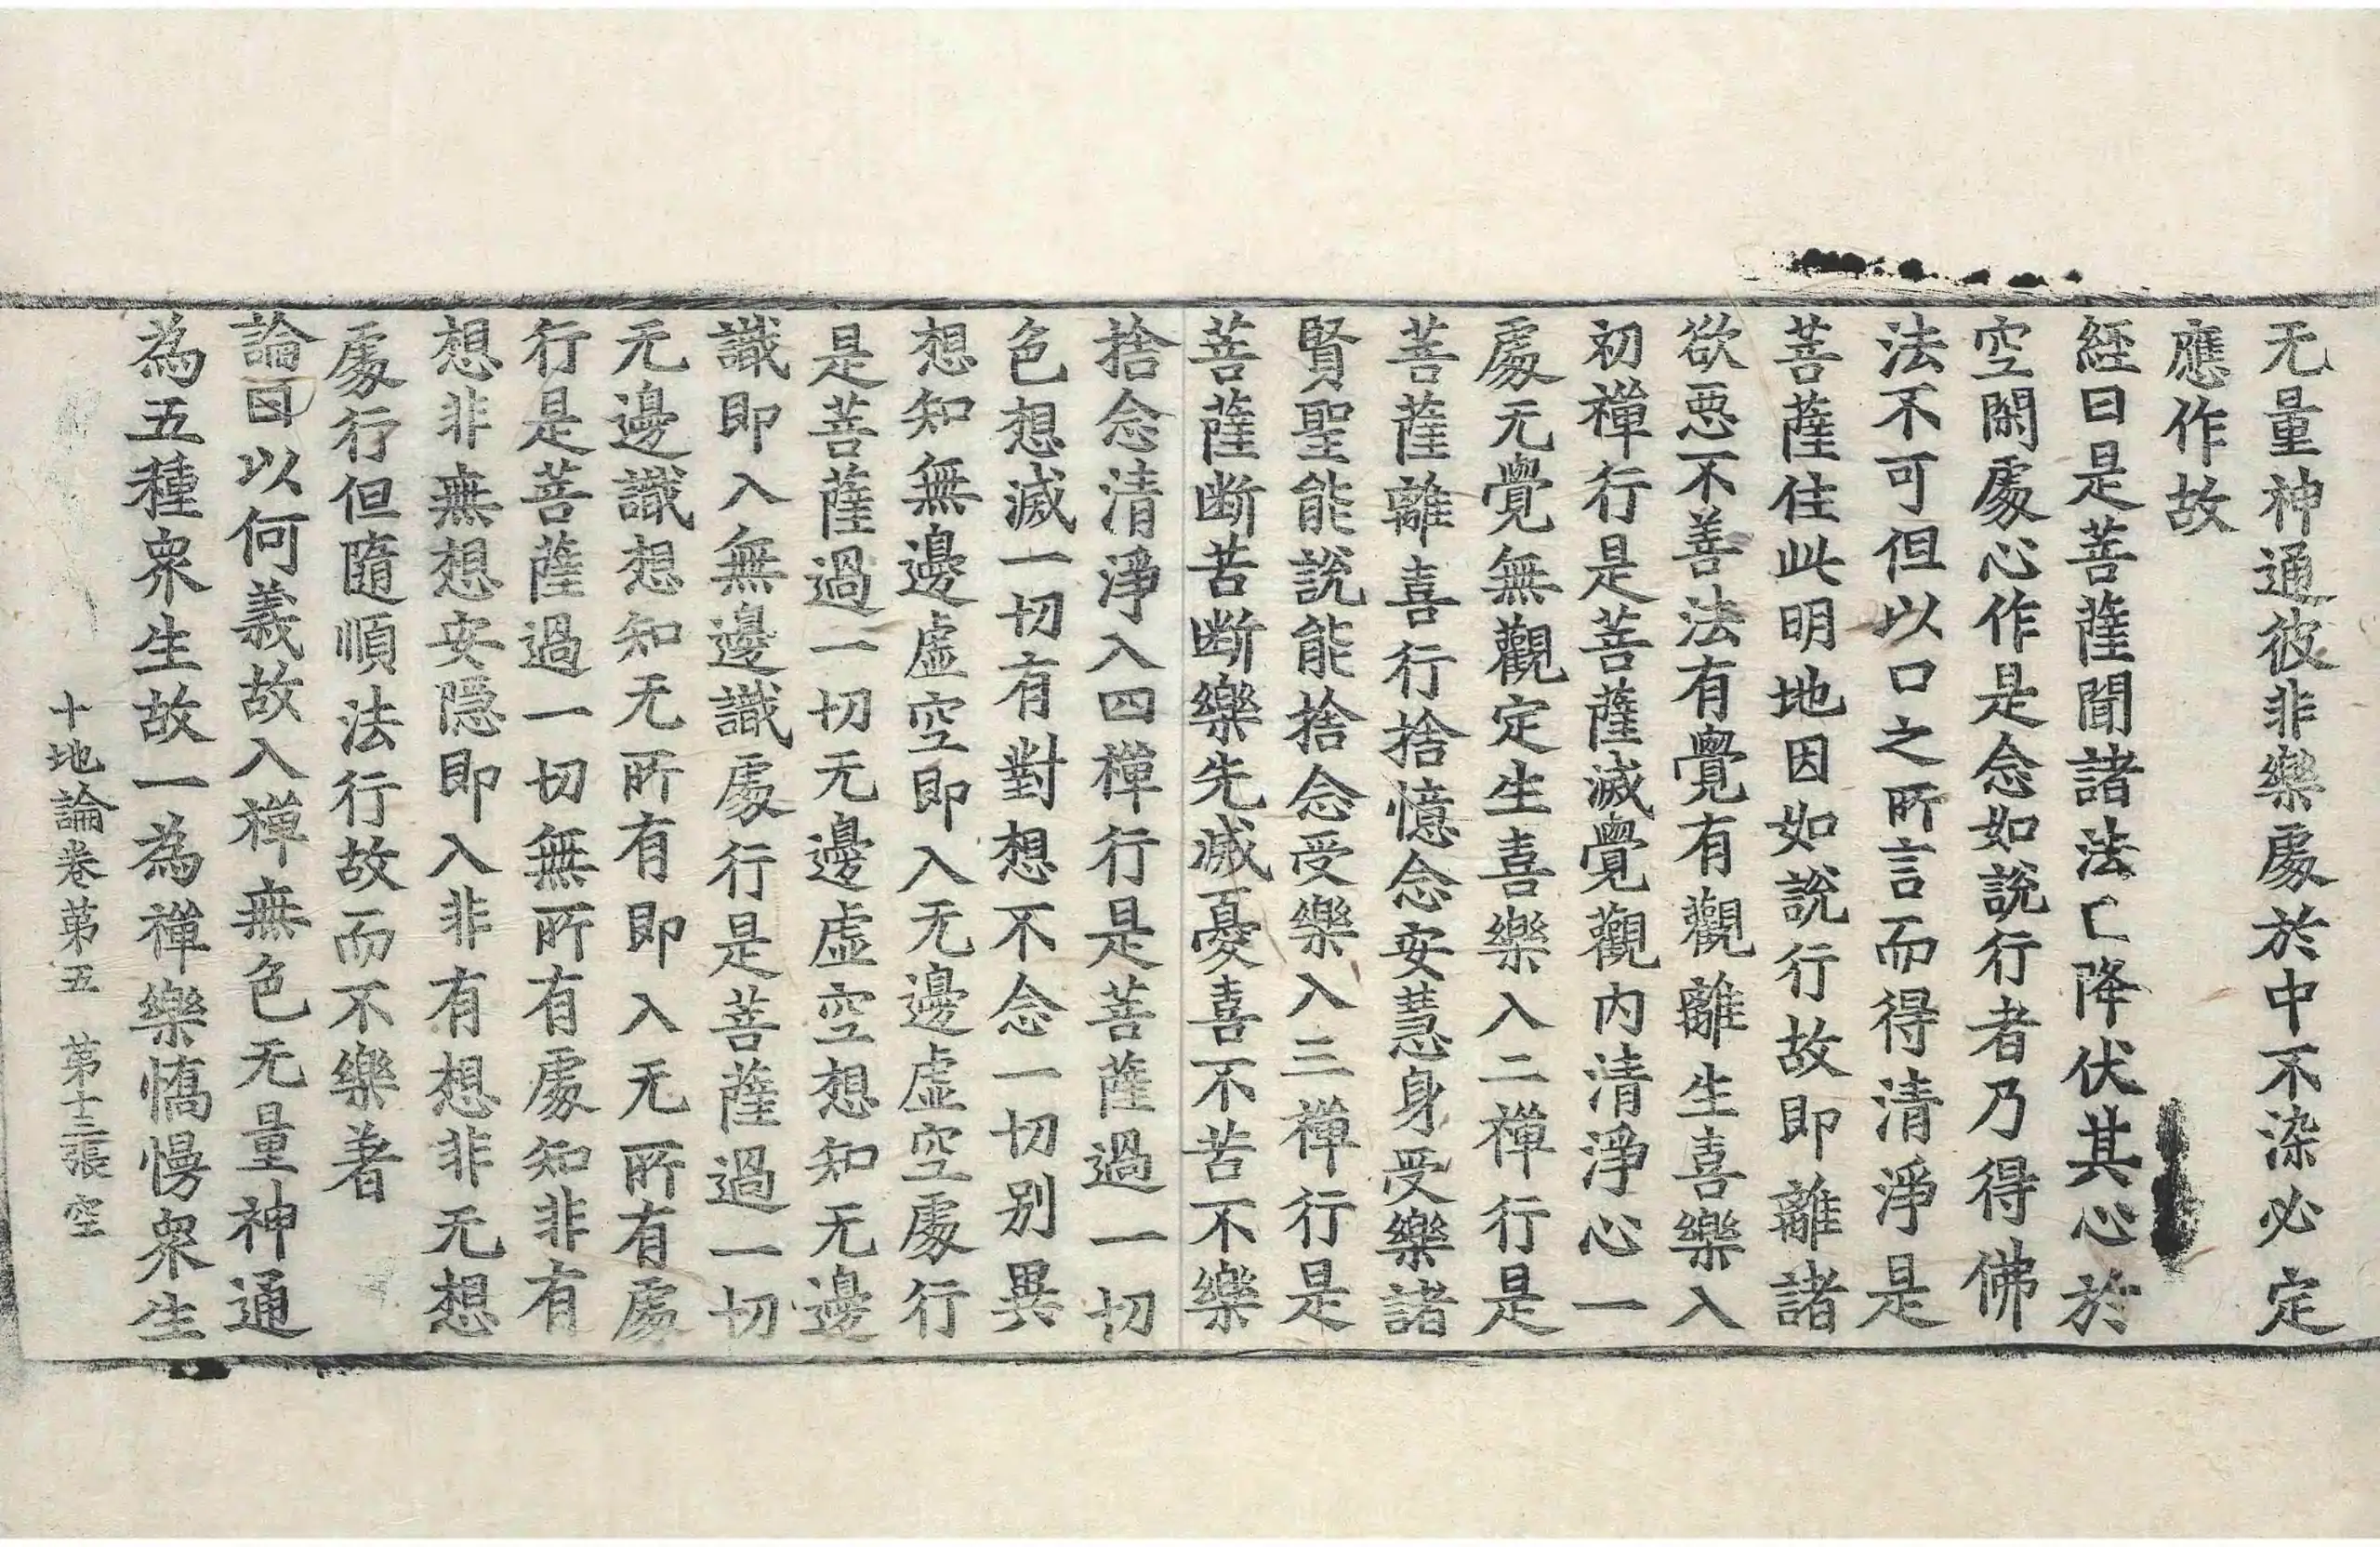 无量神通彼非樂處於中不染必定
應作故
經曰是菩薩聞諸法已降伏其心於
空閑處心作是念如說行者乃得佛
法不可但以口之所言而得清淨是
菩薩住此明地因如說行故即離諸
欲惡不善法有覺有觀離生喜樂入
初禪行是菩薩滅覺觀內清淨心一
處无覺無觀定生喜樂入二禪行是
菩薩離喜行捨憶念安慧身受樂諸
賢聖能說能捨念受樂入三禪行是
菩薩断苦断樂先滅憂喜不苦不樂
捨念清淨入四禪行是菩薩過一切
色想滅一切有對想不念一切別異
想知無邊虛空即入无邊虛空處行
是菩薩過一切无邊虛空想知无邊
識即入無邊識處行是菩薩過一切
无邊識想知无所有即入无所有處
行是菩薩過一切無所有處知非有
想非無想安隱即入非有想非无想
處行但隨順法行故而不樂著
論曰以何義故入禪無色无量神通
為五種衆生故一為禪樂憍慢衆生
十地論卷第五 第十三張 空